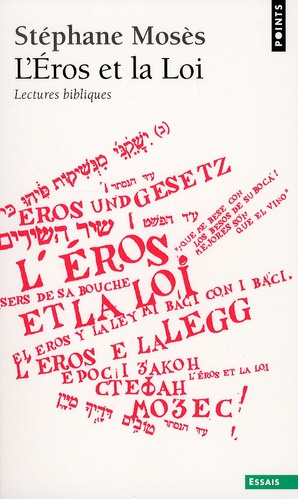 Stéphane Mosès
POINTS
L'Éros et la Loi
Lectures bibliques
(ב) יִשָּׁקֵנִי מִנְּשִׁיקוֹת פִּיהוּ כִּי
עד הנסתר
EROS UND GESETZ
עד הפשט
שיר השירים
"¡QUE ME BESE CON
LOS BESOS DE SU BOCA!
MEJORES SON
QUE EL VINO"
L'ÉROS
SERS DE SA BOUCHE
ET LA LOI
EL EROS Y LA LEY MI BACI CON I BACI.
L'EROS E LA LEGG
ЕРОС I ЗАКОН
L'ÉROS ET LA LOI
СТЕФАН
МОЗЕС!
טוֹבִים דֹּדֶיךָ מִיָּיִן
ESSAIS